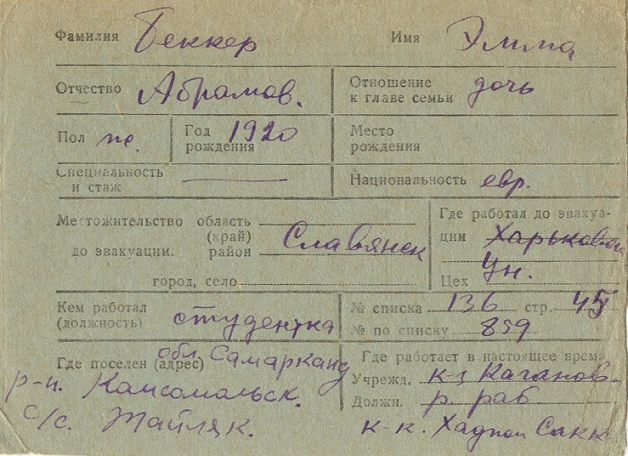 Фамилия Беккер Имя Эмма
Отчество Абрамов. Отношение к главе семьи дочь
Пол ж. Год рождения 1920 Место рождения
Специальность и стаж Национальность евр.
Местожительство область (край)
до эвакуации. район Славянск
город, село
Где работал до эвакуации Харьковск
Ун.
Цех
Кем работал (должность) студентка
№ списка 136 стр. 45
№ по списку 859
Где поселен (адрес) обл. Самарканд
р-н. Комсомольск.
с/с. Жайляк.
Где работает в настоящее время
Учрежд. к-з Каганов.
Должн. р. раб
к-к.